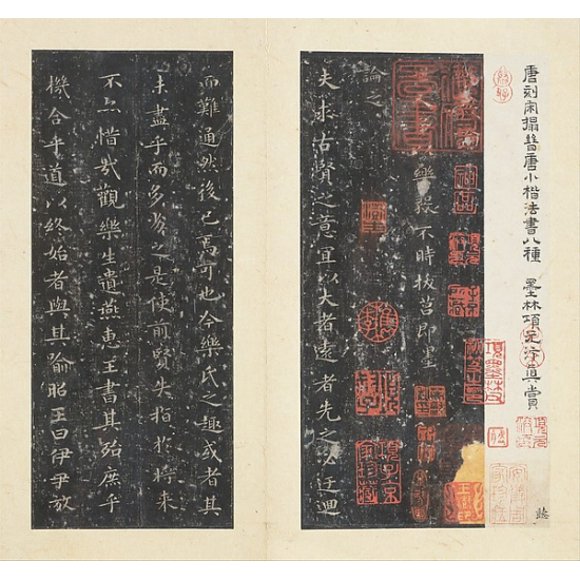 唐刻宋搨晉唐小楷法書八種 墨林項元汴真賞
聽
以樂毅不時拔莒即墨
論之
夫求古賢之意宜以大者遠者先之必迂迴
而難通然後已焉可也今樂氏之趣或者其
未盡乎而多劣之是使前賢失指於將來
不亦惜哉觀樂生遺燕惠王書其殆庶乎
機合乎道以終始者與其喻昭王曰伊尹放